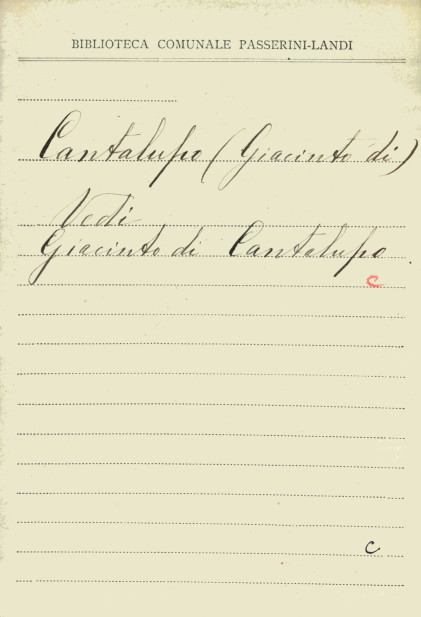 BIBLIOTECA COMUNALE PASSERINI-LANDI
Cantalupo (Giacinto di)
Vedi
Giacinto di Cantalupo.
c
c